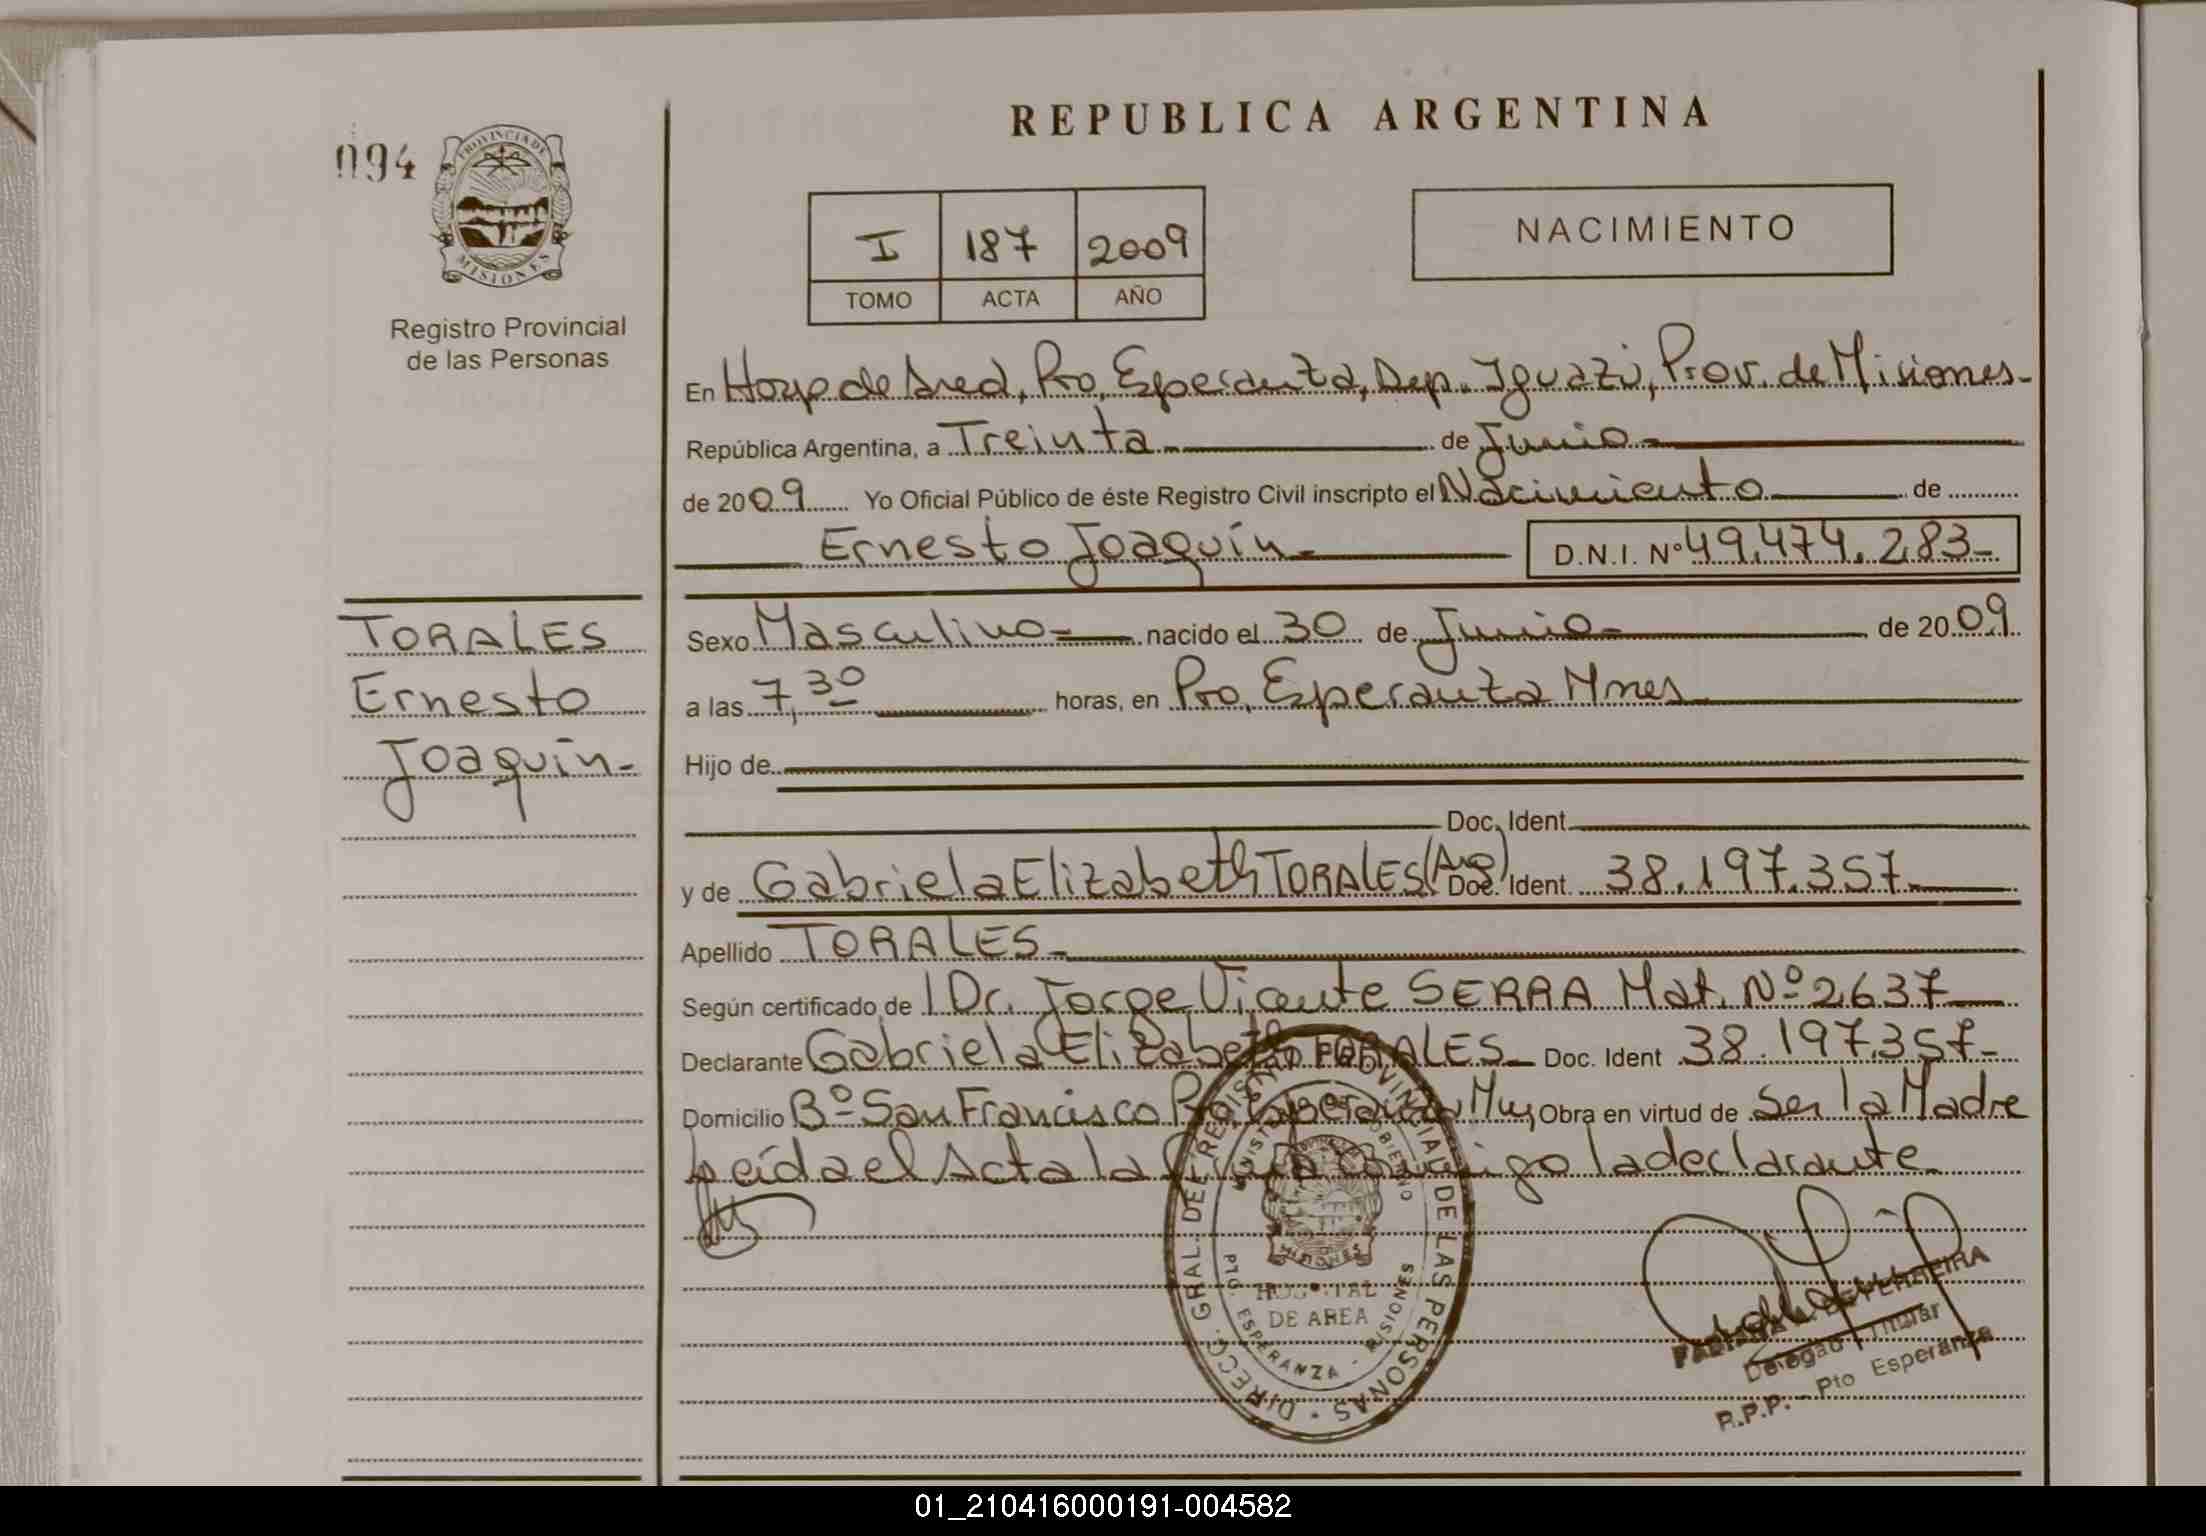 REPUBLICA ARGENTINA
094
PROVINCIA DE
MISIONES
Registro Provincial
de las Personas
I 187 2009
TOMO ACTA AÑO
NACIMIENTO
En Hosp de Area, Pto, Esperanza, Dep. Iguazú, Prov. de Misiones-
República Argentina, a Treinta de Junio
de 2009 Yo Oficial Público de éste Registro Civil inscripto el Nacimiento de
Ernesto Joaquín D.N.I. Nº 49.474.283-
TORALES
Ernesto
Joaquín-
Sexo Masculino nacido el 30 de Junio de 2009
a las 7,30 horas, en Pto, Esperanza Mnes
Hijo de
Doc. Ident.
y de Gabriela Elizabeth TORALES (Arg) Doc. Ident. 38.197.357
Apellido TORALES
Según certificado de Dr. Jorge Vicente SERRA Mat. Nº 2637
Declarante Gabriela Elizabeth TORALES Doc. Ident 38.197.357
Domicilio Bº San Francisco Pto, Esperanza Obra en virtud de Ser la Madre
Leída el Acta la firma conmigo la declarante
DIRECC. GRAL. DEL REGISTRO PROVINCIAL DE LAS PERSONAS
MINISTERIO GOBIERNO
MISIONES
HOSPITAL
DE AREA
PTO. ESPERANZA - MISIONES
DE FERREIRA
Delegado Titular
R.P.P. - Pto Esperanza
01_210416000191-004582